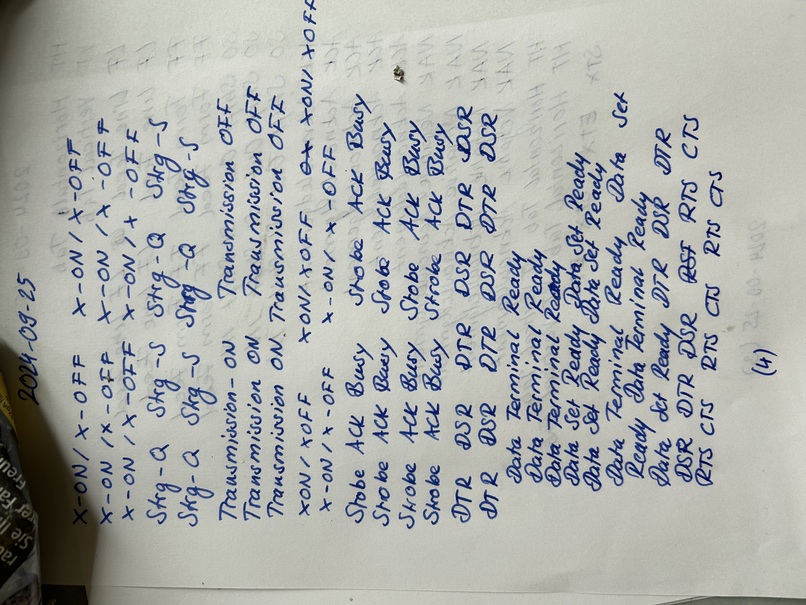 2024-09-25
X-ON/X-OFF X-ON/X-OFF
X-ON/X-OFF X-ON/X-OFF
X-ON/X-OFF X-ON/X-OFF
Strg-Q Strg-S Strg-Q Strg-S
Strg-Q Strg-S Strg-Q Strg-S
Transmission-ON Transmission OFF
Transmission ON Transmission OFF
Transmission ON Transmission OFF
XON/XOFF XON/XOFF XON/XOFF
X-ON/X-OFF X-ON/X-OFF
Strobe ACK Busy Strobe ACK Busy
Strobe ACK Busy Strobe ACK Busy
Strobe ACK Busy Strobe ACK Busy
Strobe ACK Busy Strobe ACK Busy
DTR DSR DTR DSR DTR DSR
DTR DSR DTR DSR DTR DSR
Data Terminal Ready
Data Terminal Ready
Data Terminal Ready
Data Set Ready Data Set Ready
Data Set Ready Data Set Ready
Data Terminal Ready Data Set
Ready Data Terminal Ready
Data Set Ready DTR DSR DTR
DSR DTR DSR RTS CTS
RTS CTS RTS CTS RTS CTS
(4)